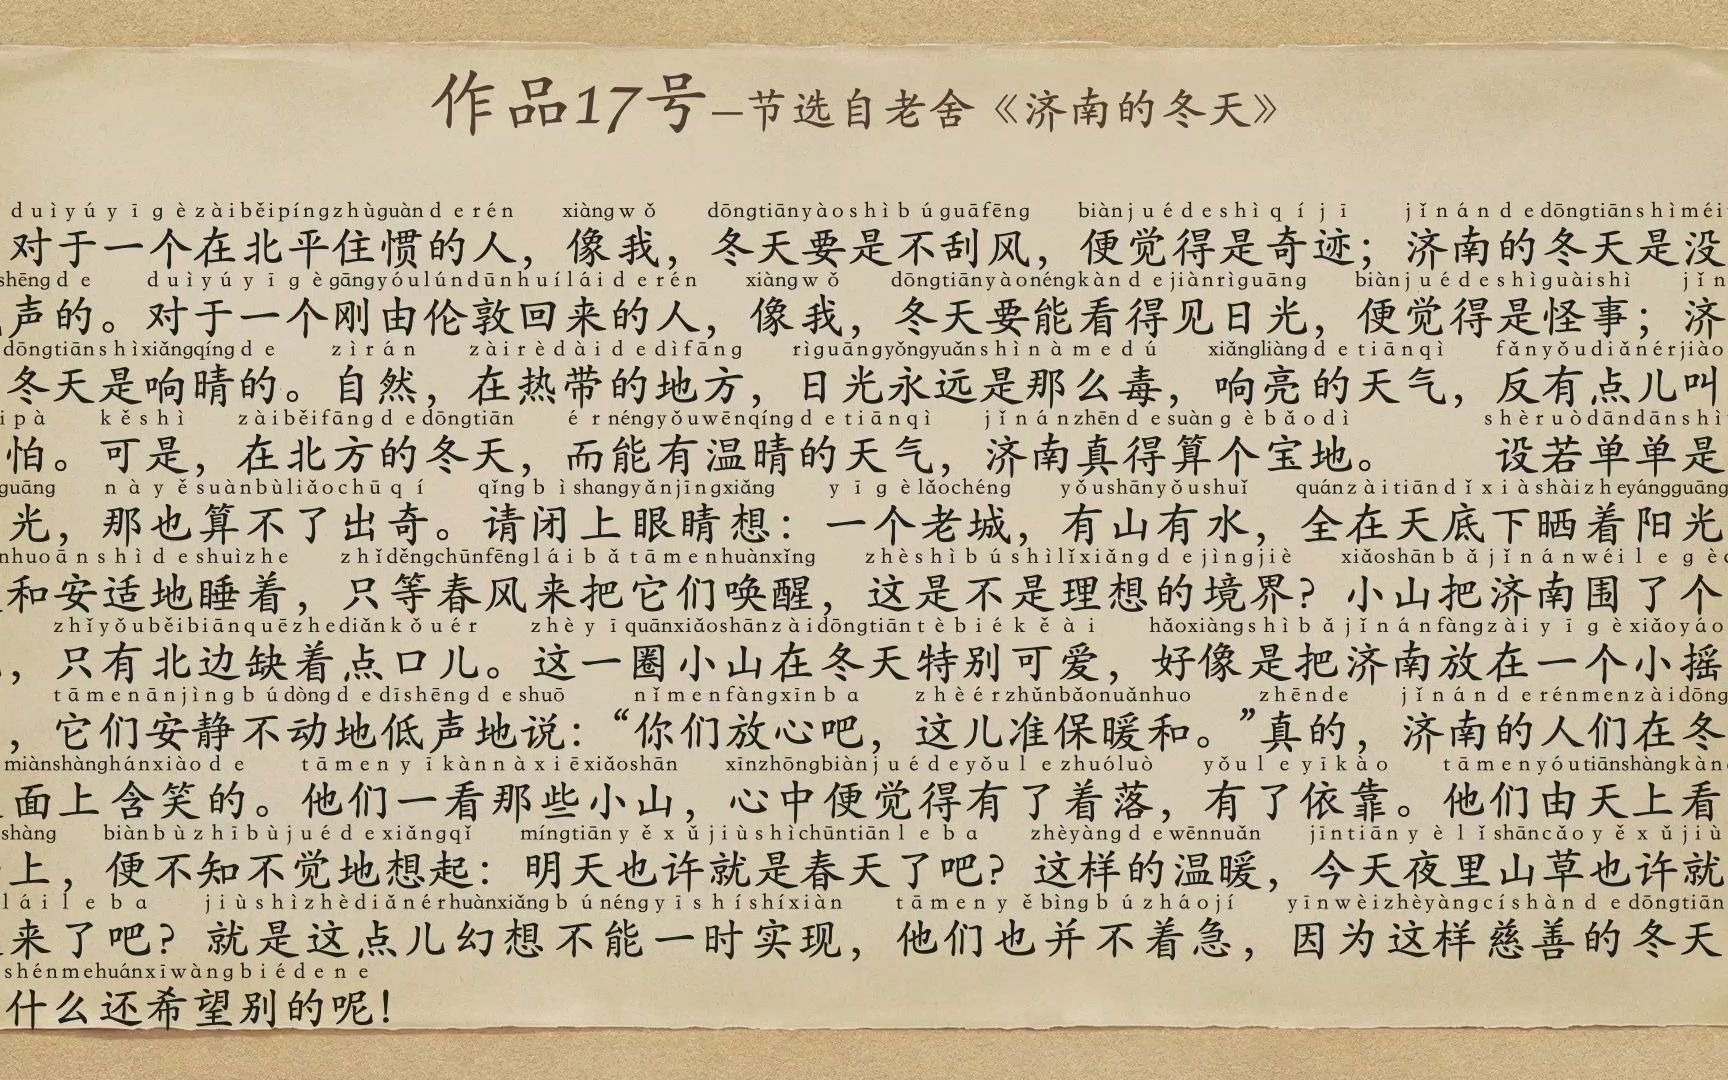 作品17号—节选自老舍《济南的冬天》
duìyúyīgèzàiběipíngzhùguànderén xiàngwǒ dōngtiānyàoshìbúguāfēng biànjuédeshìqíjī jǐnándedōngtiānshìméi
对于一个在北平住惯的人，像我，冬天要是不刮风，便觉得是奇迹；济南的冬天是没
shēngde duìyúyīgègāngyóulúndūnhuíláiderén xiàngwǒ dōngtiānyàonéngkàndejiànrìguāng biànjuédeshìguàishì jǐn
声的。对于一个刚由伦敦回来的人，像我，冬天要能看得见日光，便觉得是怪事；济
dōngtiānshìxiǎngqíngde zìrán zàirèdàidedìfāng rìguāngyǒngyuǎnshìnàmedú xiǎngliàngdetiānqì fǎnyǒudiǎnérjiào
冬天是响晴的。自然，在热带的地方，日光永远是那么毒，响亮的天气，反有点儿叫
ipà kěshì zàiběifāngdedōngtiān érnéngyǒuwēnqíngdetiānqì jǐnánzhēndesuàngèbǎodì shèruòdāndānshì
怕。可是，在北方的冬天，而能有温晴的天气，济南真得算个宝地。 设若单单是
guāng nàyěsuànbùliǎochūqí qǐngbìshangyǎnjīngxiǎng yīgèlǎochéng yǒushānyǒushuǐ quánzàitiāndǐxiàshàizheyángguāng
光，那也算不了出奇。请闭上眼睛想：一个老城，有山有水，全在天底下晒着阳光
nhuoānshìdeshuìzhe zhǐděngchūnfēngláibǎtāmenhuànxǐng zhèshìbúshìlǐxiǎngdejìngjiè xiǎoshānbǎjǐnánwéilegè
和安适地睡着，只等春风来把它们唤醒，这是不是理想的境界？小山把济南围了个
zhǐyǒuběibiānquēzhediǎnkǒuér zhèyīquānxiǎoshānzàidōngtiāntèbiékěài hǎoxiàngshìbǎjǐnánfàngzàiyīgèxiǎoyáo
，只有北边缺着点口儿。这一圈小山在冬天特别可爱，好像是把济南放在一个小摇
tāmenānjìngbúdòngdedīshēngdeshuō nǐmenfàngxīnba zhèérzhǔnbǎonuǎnhuo zhēnde jǐnánderénmenzàidōng
，它们安静不动地低声地说：“你们放心吧，这儿准保暖和。”真的，济南的人们在冬
miànshànghánxiàode tāmenyīkànnàxiēxiǎoshān xīnzhōngbiànjuédeyǒulezhuóluò yǒuleyīkào tāmenyóutiānshàngkàn
面上含笑的。他们一看那些小山，心中便觉得有了着落，有了依靠。他们由天上看
shàng biànbùzhībùjuédexiǎngqǐ míngtiānyěxǔjiùshìchūntiānleba zhèyàngdewēnnuǎn jīntiānyèlǐshāncǎoyěxǔjiù
上，便不知不觉地想起：明天也许就是春天了吧？这样的温暖，今天夜里山草也许就
láileba jiùshìzhèdiǎnérhuànxiǎngbúnéngyīshíshíxiàn tāmenyěbìngbúzháojí yīnwèizhèyàngcíshàndedōngtiān
来了吧？就是这点儿幻想不能一时实现，他们也并不着急，因为这样慈善的冬天
shénmehuánxīwàngbiédene
什么还希望别的呢！